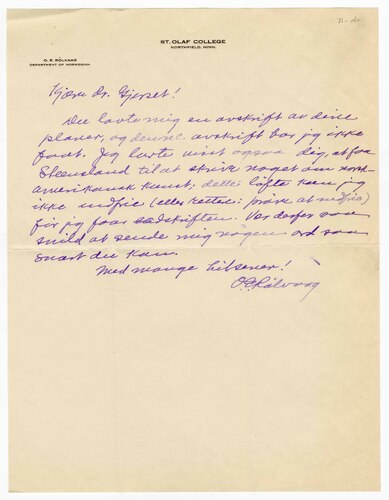 n.d.
ST. OLAF COLLEGE
NORTHFIELD, MINN.
O. E. RÖLVAAG
DEPARTMENT OF NORWEGIAN
Kjære Dr. Gjerset!
Du lovte mig en avskrift av dine
planer, og denne avskrift har jeg ikke
faat. Jeg lovte visst ogsaa dig, at faa
til at skrive noget om norsk-
amerikansk kunst, dette løfte kan jeg
ikke indfrie (eller rettere: prøve at indfrie)
før jeg faar avskriften. Vær derfor saa
snild at sende mig nogen ord saa
snart du kan.
Med mange hilsener!
O E Rølvaag